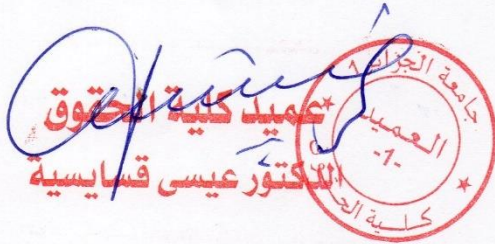 عميد كلية الحقوق
الدكتور عيسى قسايسية
جامعة الجزائر 1
العميد
-1-
كلية الحقوق